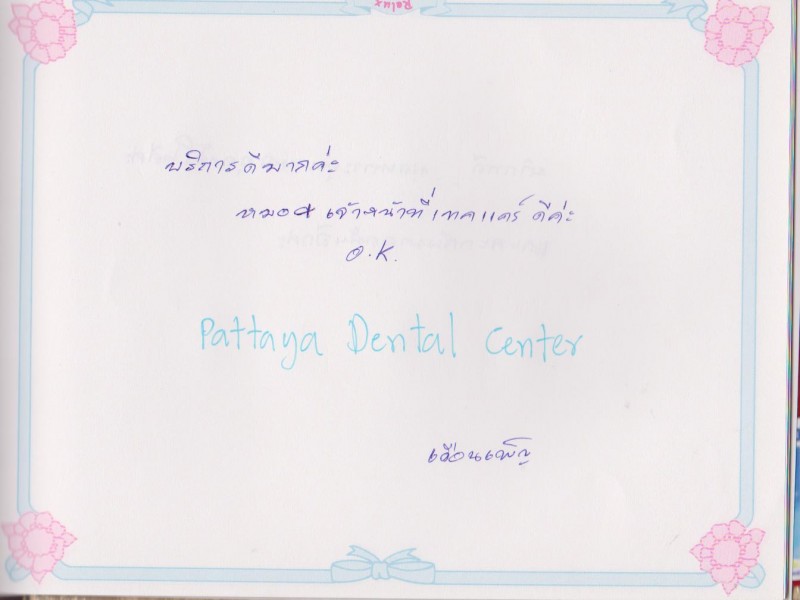 Relux
บริการดีมากค่ะ
หมอ + เจ้าหน้าที่เทคแคร์ ดีค่ะ
O.K.
Pattaya Dental Center
เดือนเพ็ญ